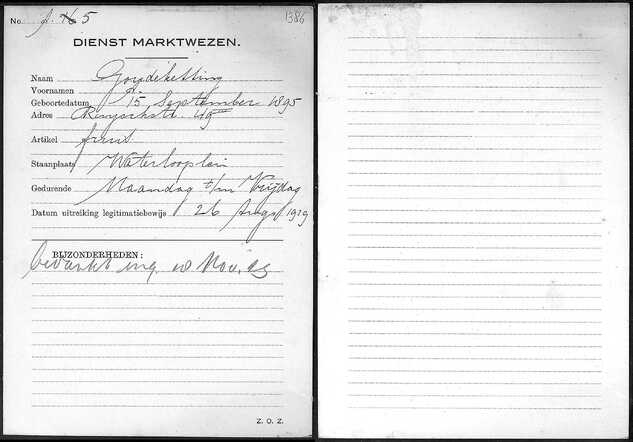 No. J. 16 5 1386
DIENST MARKTWEZEN.
Naam Goudeketting
Voornamen R.
Geboortedatum 15 September 1895
Adres Ruyschstr. 49
Artikel fruit
Staanplaats Waterlooplein
Gedurende Maandag t/m Vrijdag
Datum uitreiking legitimatiebewijs 26 Aug 1919
BIJZONDERHEDEN:
ing. 18 Nov.
Z. O. Z.